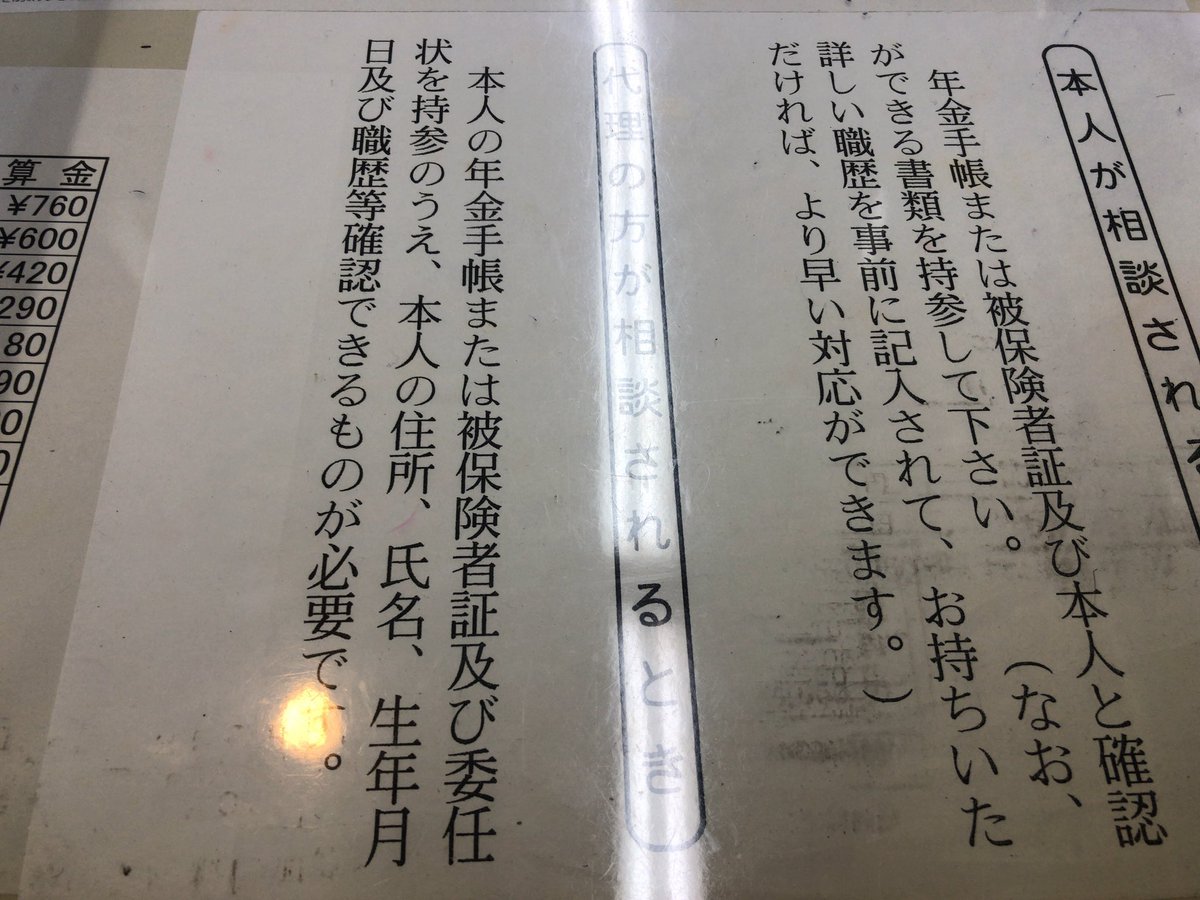 本人が相談される
年金手帳または被保険者証及び本人と確認
ができる書類を持参して下さい。（なお、
詳しい職歴を事前に記入されて、お持ちいた
だければ、より早い対応ができます。）
代理の方が相談されるとき
本人の年金手帳または被保険者証及び委任
状を持参のうえ、本人の住所、氏名、生年月
日及び職歴等確認できるものが必要で。
算金
¥760
¥600
¥420
290
80
90
0